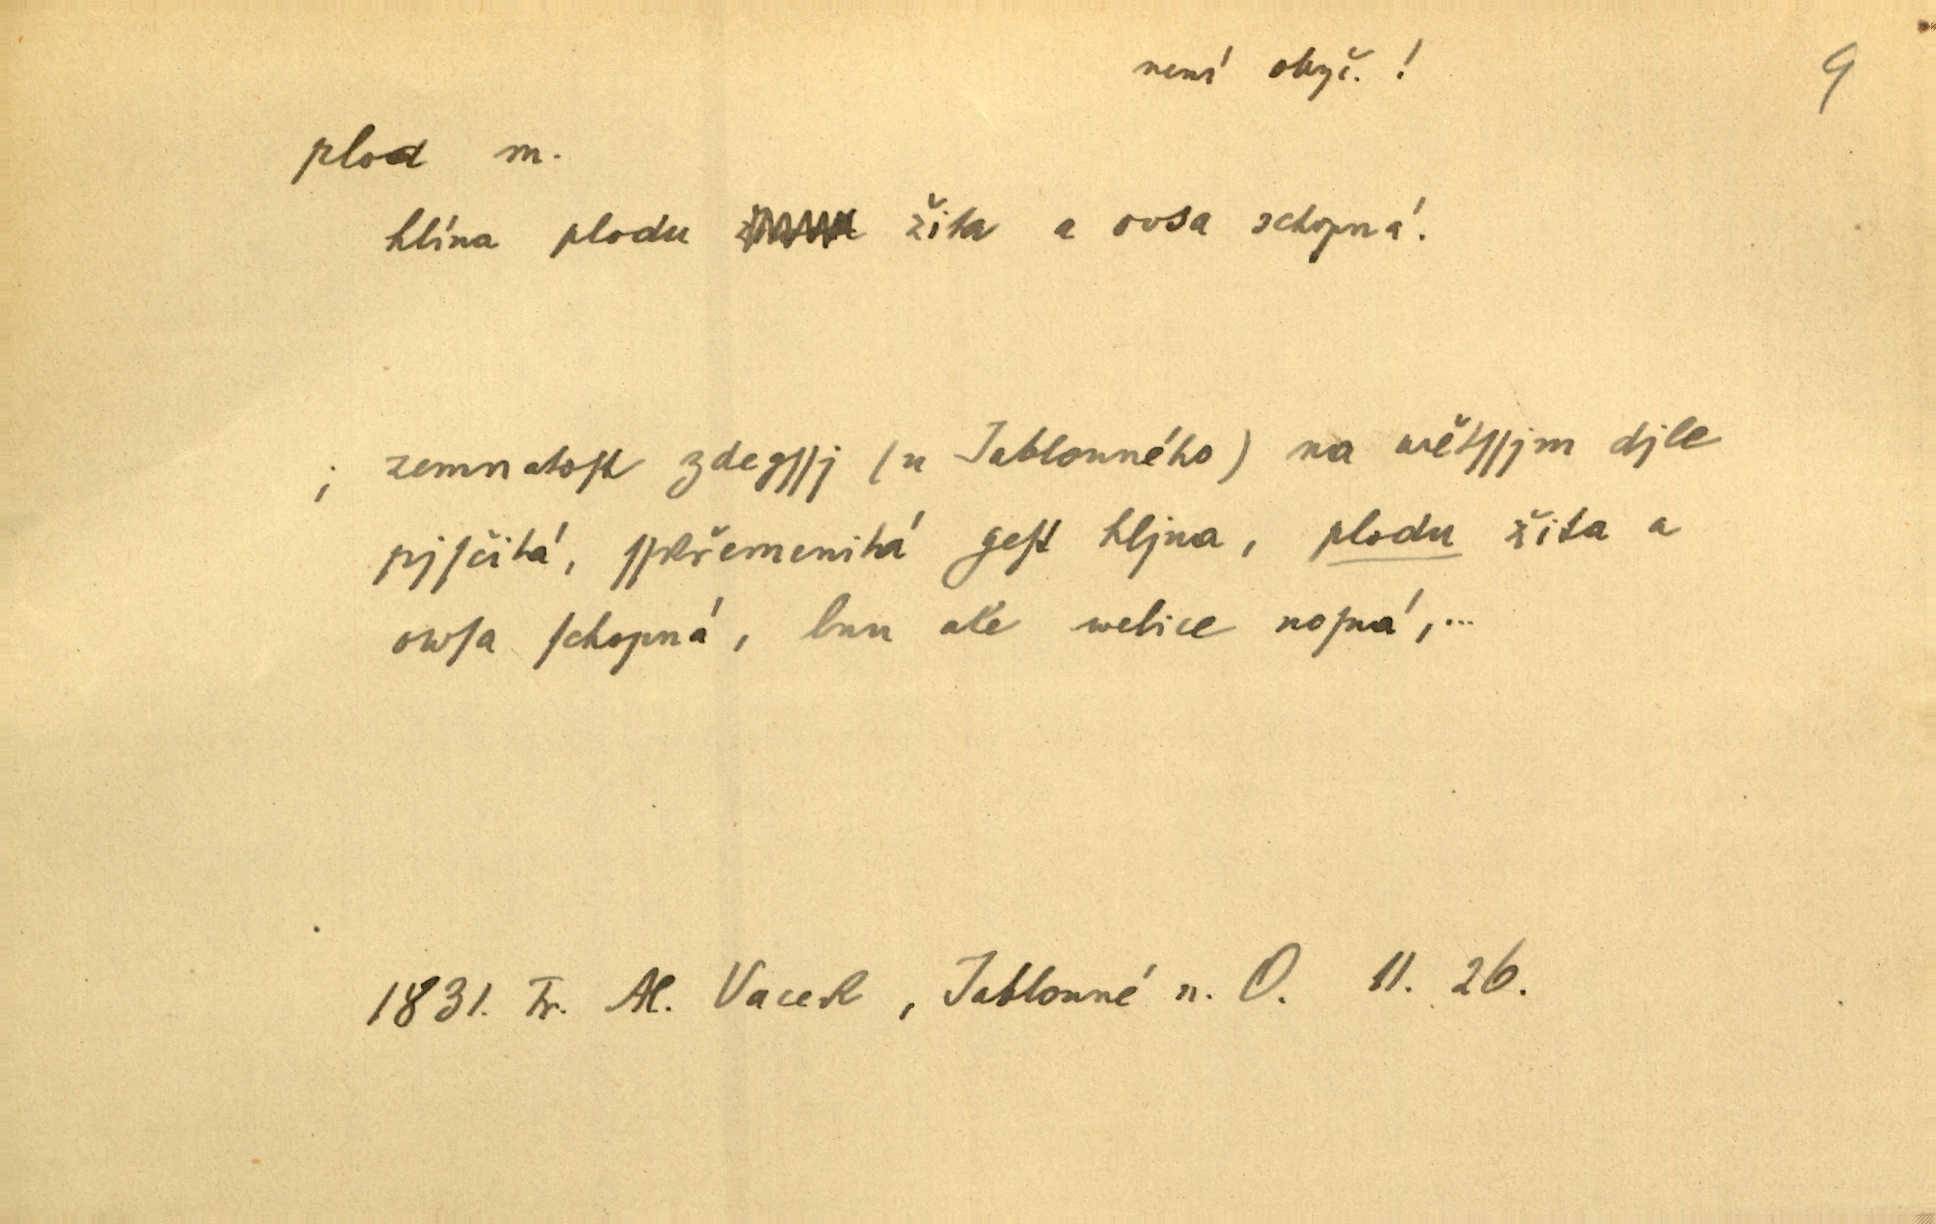 není obyč. !
9
plod m.
hlína plodu žita a ovsa schopná.
; zemnatoſt zdegſſj (u Jablonného) na wětſſjm djle
pjſčitá, ſſkřemenitá geſt hljna, plodu žita a
owſa ſchopná, lnu ale welice noſná,...
1831. Fr. Al. Vacek, Jablonné n. O. 11. 26.